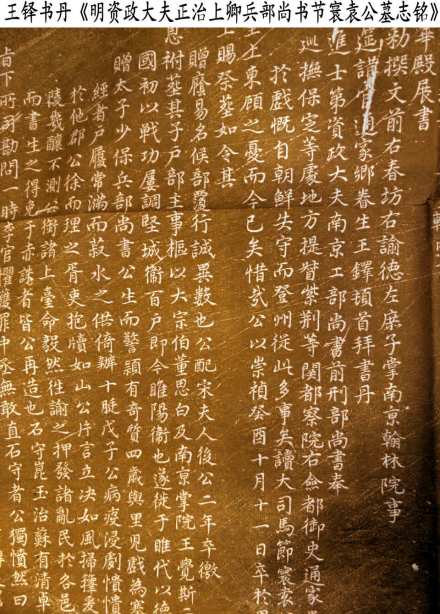 王铎书丹《明资政大夫正治上卿兵部尚书节寰袁公墓志铭》
華殿展書
勑撰文前右春坊右諭德左庶子掌南京翰林院事
筵講官通家鄉眷生王鐸頓首拜書丹
進士第資政大夫南京工部尚書前刑部尚書奉
巡撫保定等處地方提督紫荆等関都察院右僉都御史通家
於戲慨自朝鮮失守而登州從此多事矣讀大司馬節寰袁
主上東顧之憂而今已矣惜哉公以崇禎癸酉十月十一日卒於
上賜祭塟如令其
恩祔塟其子户部主事樞以大宗伯董思白及南京掌院王覺斯
贈廕易名候部覆行誠異數也公配宋夫人後公二年卒徼
國初以戰功屢調堅城衞百户即今睢陽衞也遂徙于睢代以
贈太子少保兵部尚書公生而警穎有奇質四歲與里兒戲為
經者户屨常滿而菽水之供倚辦十脡戊子公病疫浸劇憒憒
於他郡公徐而理之胥吏抱牘如山公片言立決如風掃籜
陵幾釀不測公銜諸上臺命毅然往諭之押發諸亂民於各邑
而書生之得免于赤誅者皆公再造也石守崑玉治蘇有清
旨下所司勘問一時李官懼獲罪中丞無敢直石守者公獨憤然曰